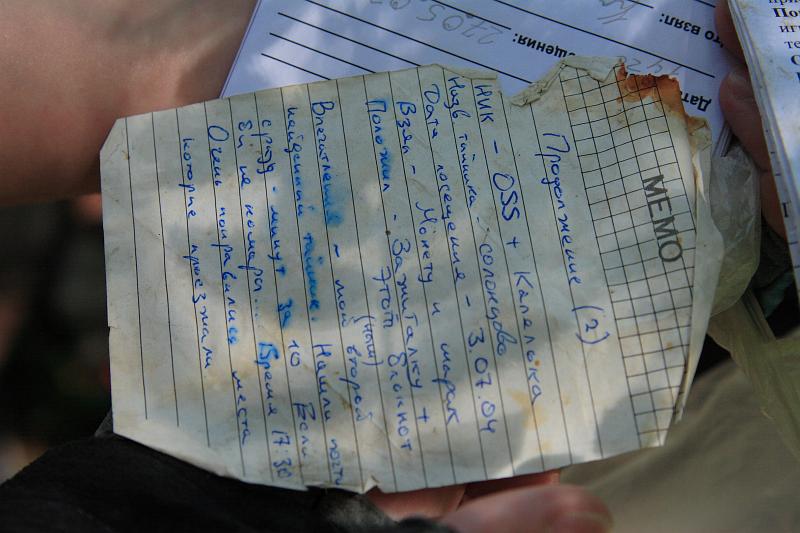 MEMO
Продолжение (2)
НИК - OSS + Капелька
Назв тайника - солонцово
Дата посещения - 3.07.04
Взял - Монету и марак
Положил - Зажигалку +
Этот блокнот
Впечатление - мой (наш) второй
найденный тайник. Нашли почти
сразу - минут за 10 Если
бы не комары... Время 17:30
Очень понравились места
которые проезжали
Дат
ещения:
22.05.0
то взял:
По
иг
те